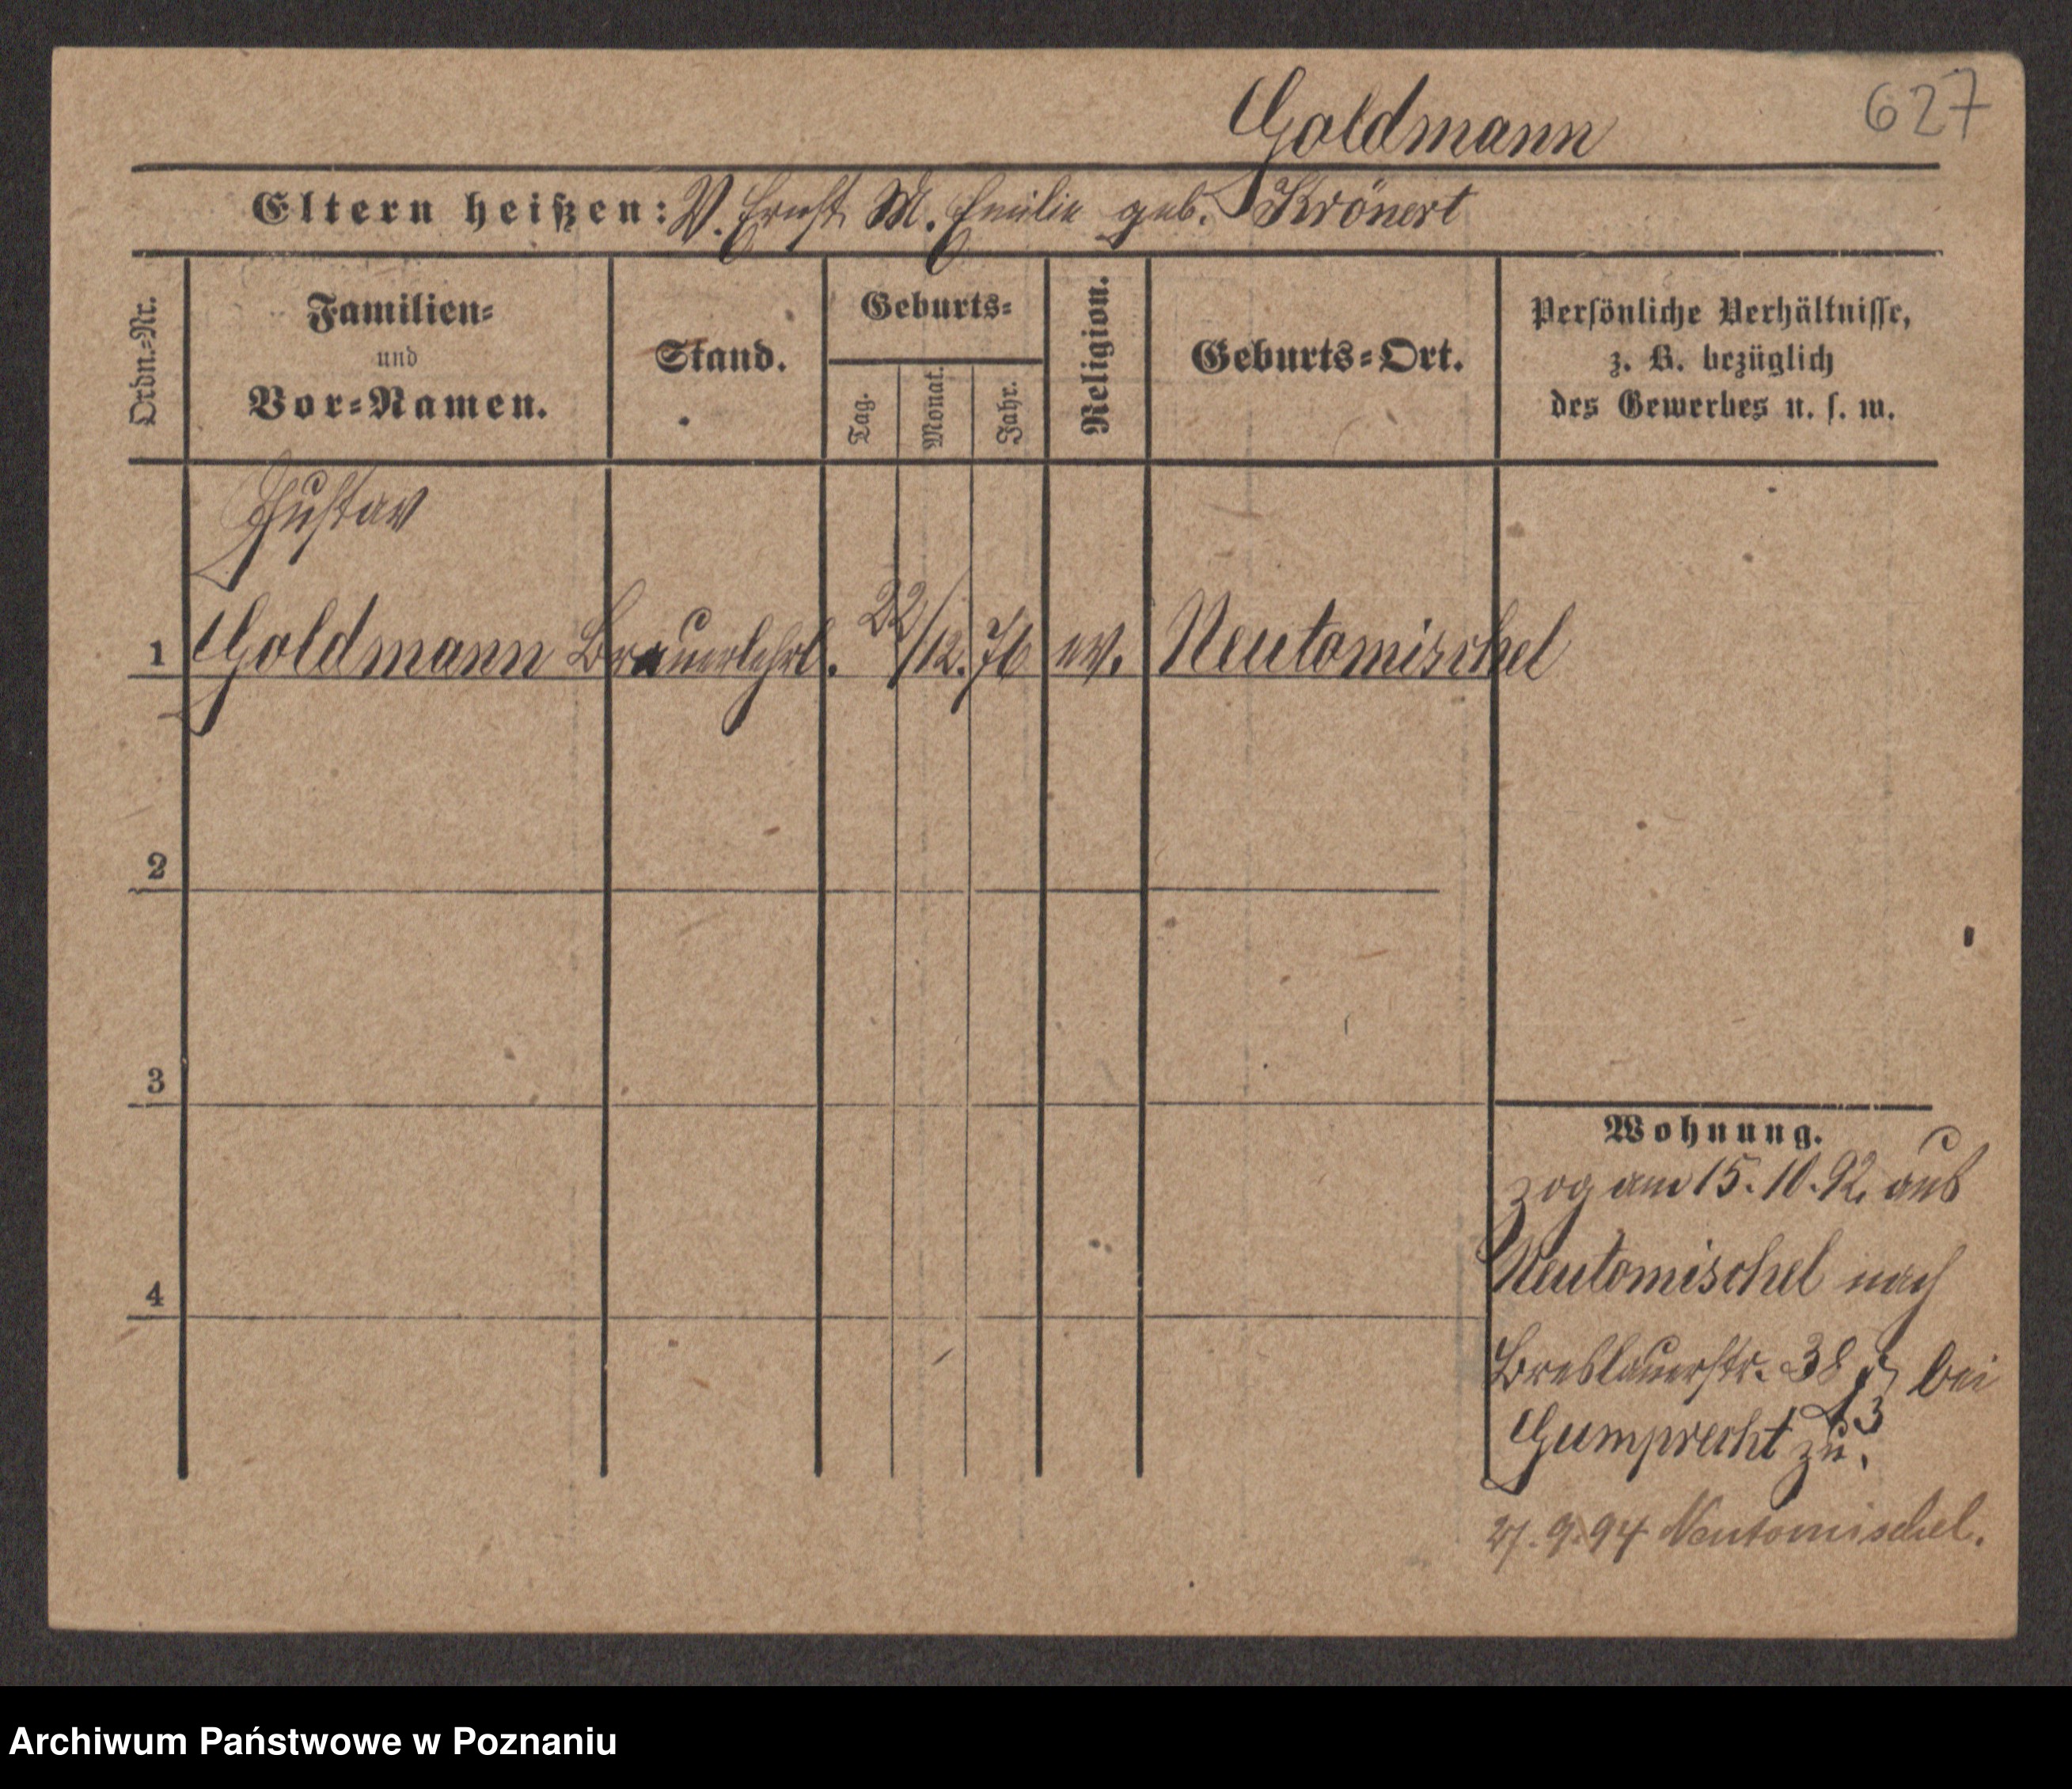 Goldmann 627
Eltern heißen: V. Ernst M. Emilie geb. Krönert
Ordn.-Nr.
Familien-
und
Vor-Namen.
Stand.
Geburts-
Tag.
Monat.
Jahr.
Religion.
Geburts-Ort.
Persönliche Verhältnisse,
z. B. bezüglich
des Gewerbes u. s. w.
Gustav
1 Goldmann Brauerlehrl. 22/12. 76 ev. Neutomischel
2
3
4
Wohnung.
zog am 15. 10. 92. aus
Neutomischel nach
Breslauerstr. 38 bei
Gumprecht zu.
27. 9. 94 Neutomischel.
Archiwum Państwowe w Poznaniu